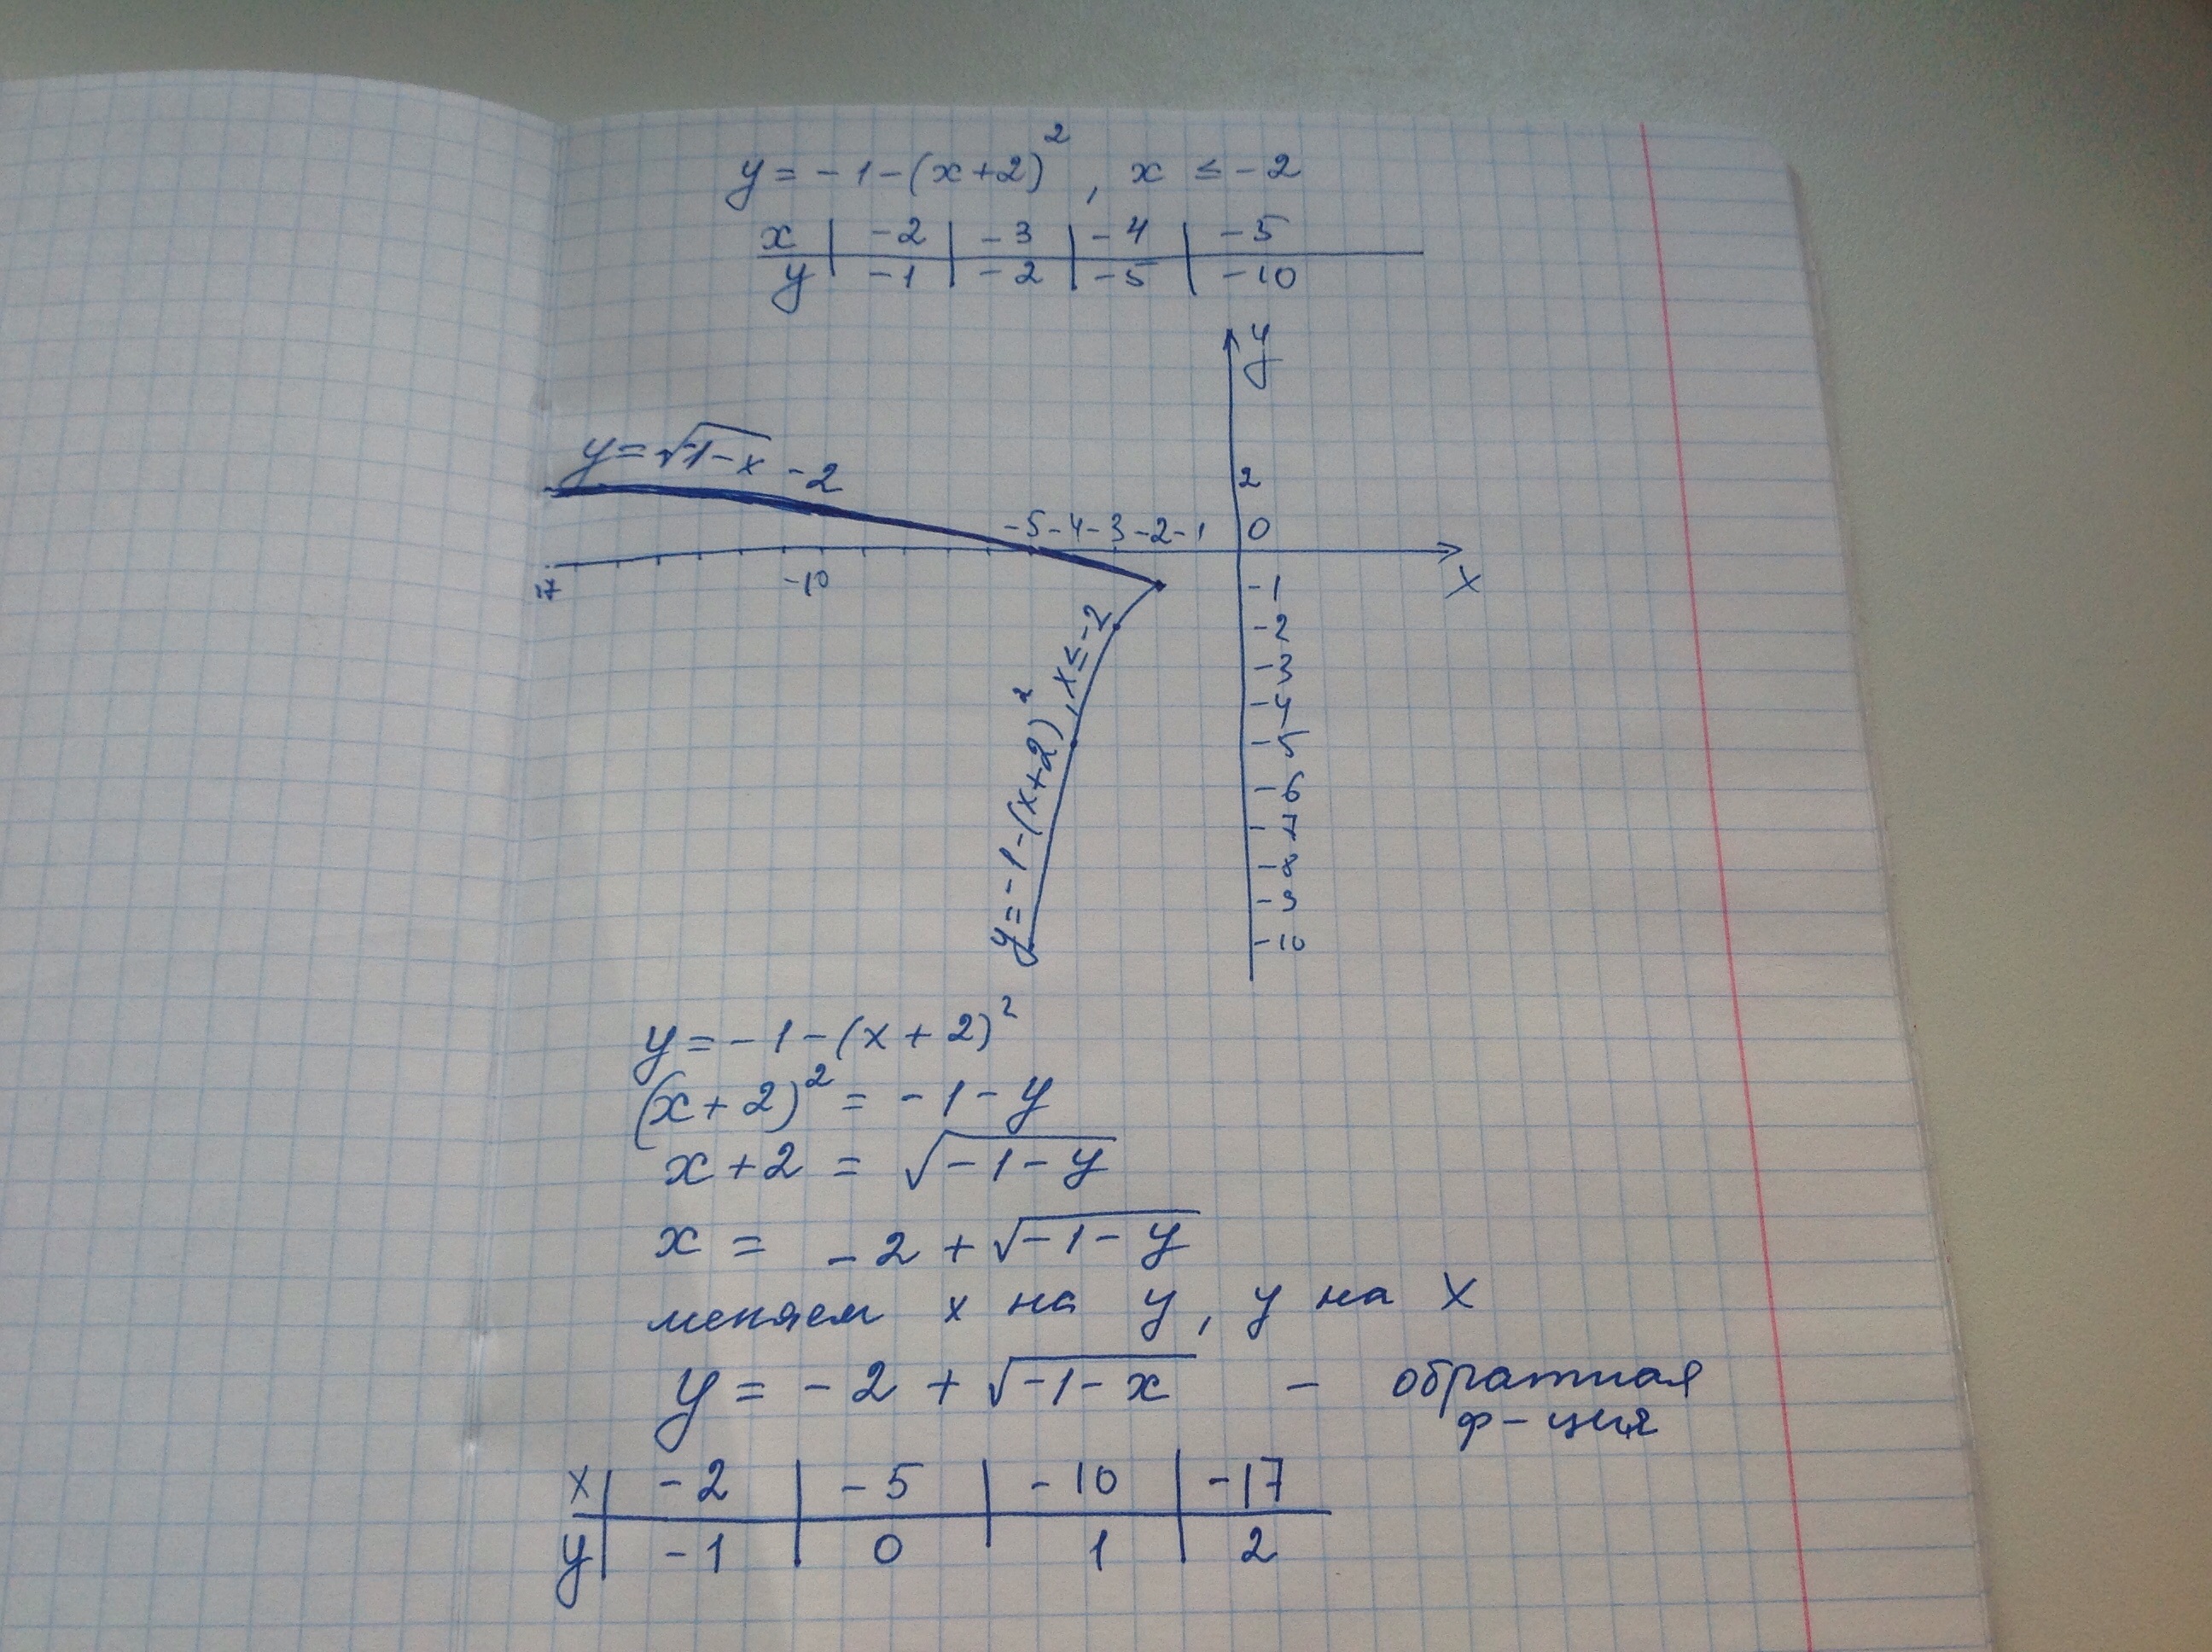 y = -1-(x+2)², x ≤ -2
x | -2 | -3 | -4 | -5
y | -1 | -2 | -5 | -10
y
y=√-1-x -2
2
-5-4-3-2-1 0
17 -10 x
-1
-2
-3
-4
-5
-6
-7
-8
-9
-10
y=-1-(x+2)², x≤-2
y = -1-(x+2)²
(x+2)² = -1-y
x+2 = √-1-y
x = -2+√-1-y
меняем x на y, y на x
y = -2+√-1-x - обратная
ф-ция
x | -2 | -5 | -10 | -17
y | -1 | 0 | 1 | 2